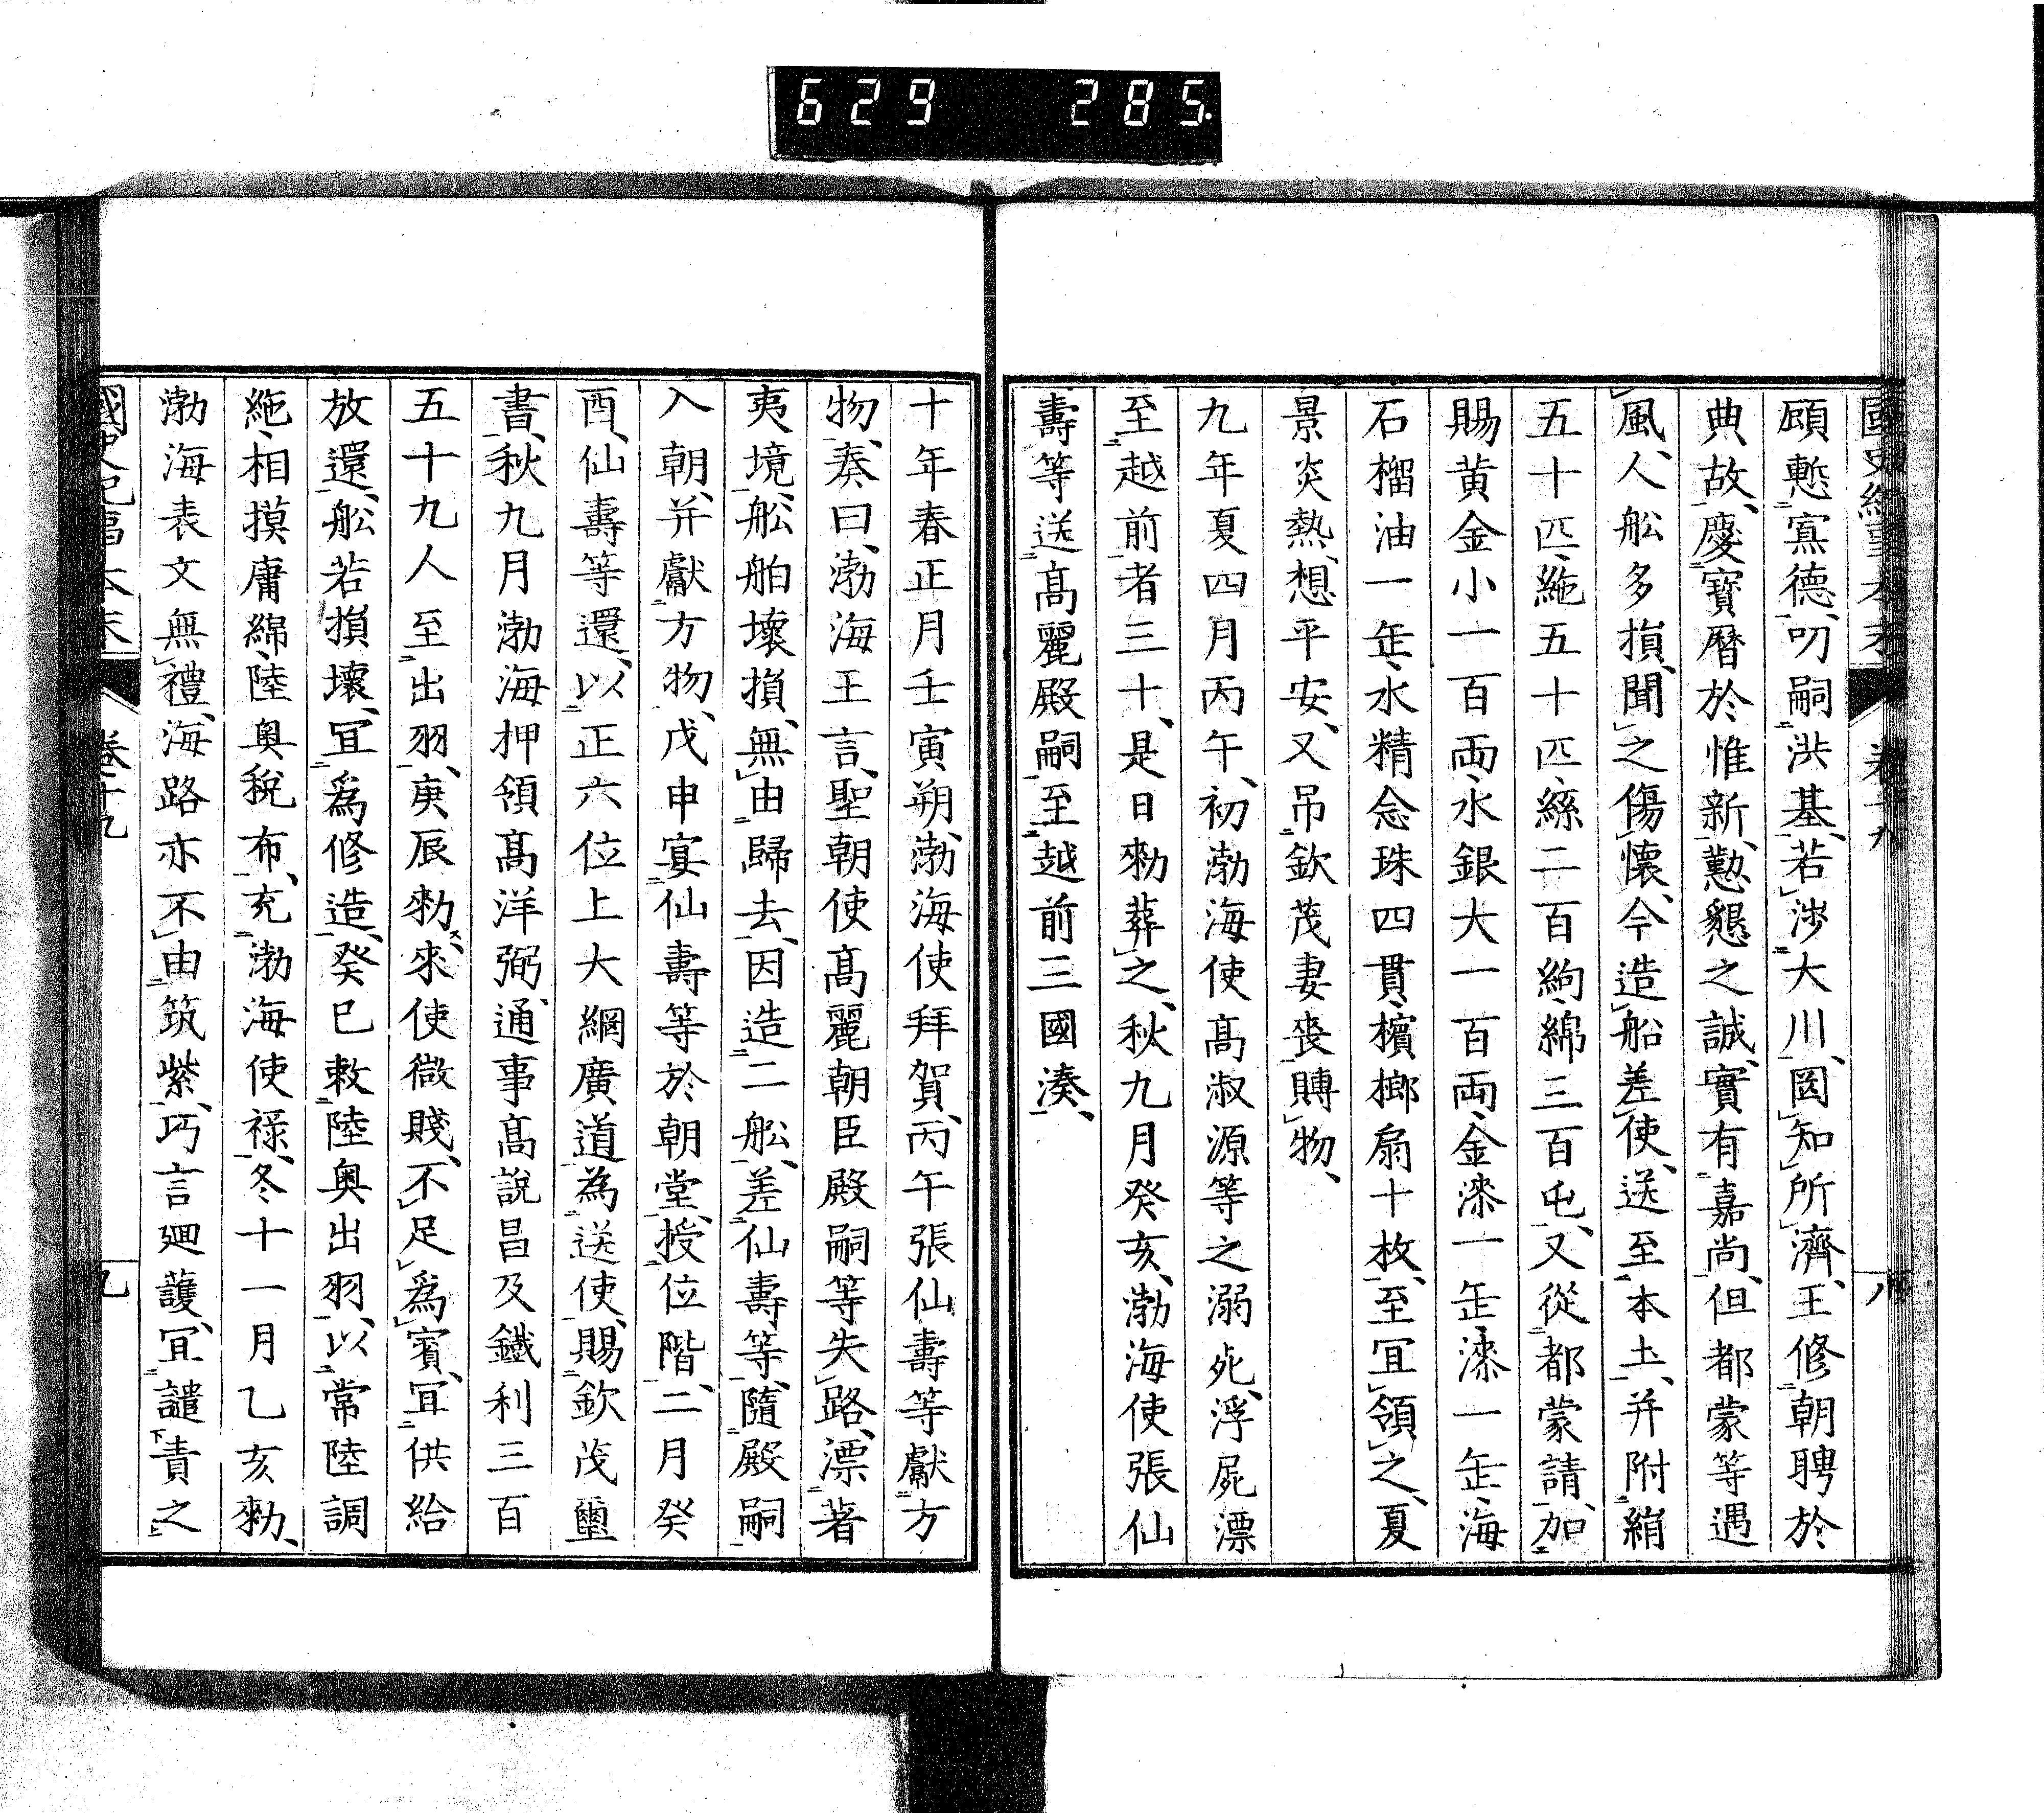 629 285.
國史紀事本末 卷十九 八
顧慙寡德、叨嗣洪基、若渉大川、罔知所濟、王修朝聘於
典故、慶寶曆於惟新、懃懇之誠、實有嘉尚、但都蒙等遇
風、人舩多損、聞之傷懷、今造船差使、送至本土、并附絹
五十匹、絁五十匹、絲二百絇、綿三百屯、又從都蒙請、加
賜黄金小一百両、水銀大一百両、金漆一缶、漆一缶、海
石榴油一缶、水精念珠四貫、檳榔扇十枚、至宜領之、夏
景炎熱、想平安、又吊欽茂妻喪賻物、
九年夏四月丙午、初渤海使髙淑源等之溺死、浮屍漂
至越前者三十、是日勑葬之、秋九月癸亥、渤海使張仙
壽等送髙麗殿嗣至越前三國湊、
十年春正月壬寅朔、渤海使拜賀、丙午張仙壽等獻方
物、奏曰、渤海王言、聖朝使髙麗朝臣殿嗣等失路、漂著
夷境、舩舶壞損、無由歸去、因造二舩、差仙壽等、隨殿嗣
入朝、并獻方物、戊申宴仙壽等於朝堂、授位階、二月癸
酉、仙壽等還、以正六位上大網廣道為送使、賜欽茂璽
書、秋九月渤海押領髙洋弼、通事髙説昌及鐵利三百
五十九人至出羽、庚辰勑、來使微賤、不足爲賓、宜供給
放還、舩若損壞、宜爲修造、癸巳敕陸奥出羽、以常陸調
絁、相摸庸綿、陸奥税布、充渤海使禄、冬十一月乙亥勑、
渤海表文無禮、海路亦不由筑紫、巧言廻護、宜譴責之
國史紀事本末 卷十九 九